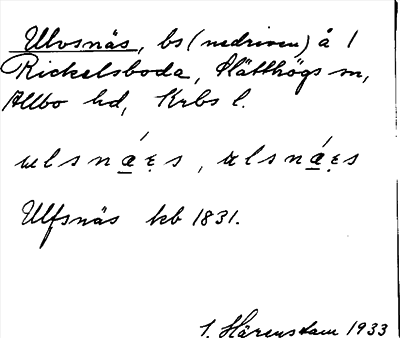 Ulvsnäs, bs (nedriven) å 1
Rickelsboda, Slätthögs sn,
Allbo hd, Krbs l.
ulsnáęs, ulsnáęs
Ulfsnäs kb 1831.
Härenstam 1933